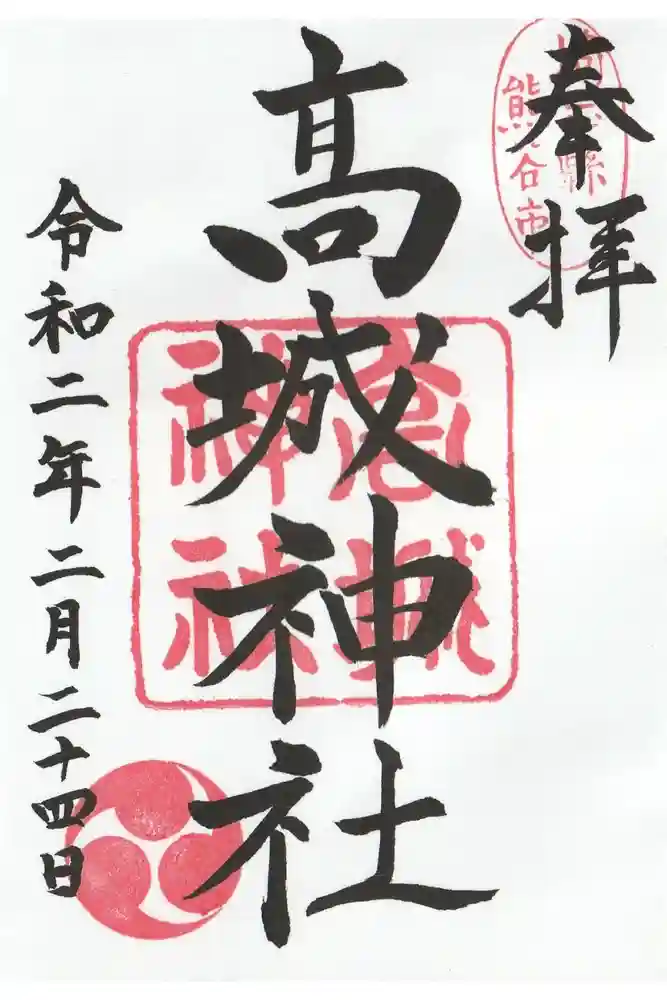 奉拝
埼玉縣
熊谷市
高城神社
高城
神社
令和二年二月二十四日